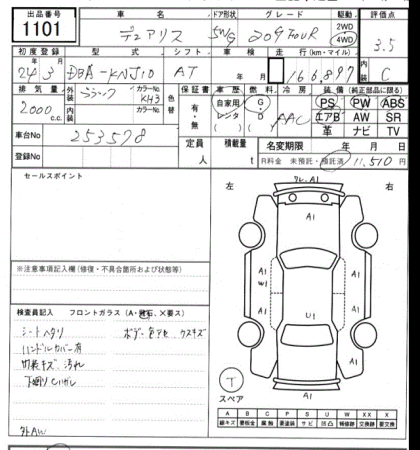 出品番号 車名 ドア形状 グレード 駆動 評価点
1101 デュアリス 5W 20G FOUR 2WD 4WD 3.5
初度登録 型式 シフト 車検 走行(km・マイル) 内装
24年3月 DBA-KNJ10 AT 年 月 166,897 C
排気量 外装 カラーNo 色替 保証書 車歴 燃料 冷房 装備(純正部品に限る)
2000c.c. ブラック KH3 有・無 自家用 レンタ G D AAC PS PW ABS
内装 カラーNo エアB AW SR
革 ナビ TV
車台No 253578
登録No 定員 人 積載量 t 名変期限 年 月 日
R料金 未預託・預託済 11,510円
セールスポイント
左 右
フレ、A1
A1
A1 A1
W1
U1
A1 A1
A1
※注意事項記入欄(修復・不具合箇所および状態等)
検査員記入 フロントガラス(A・飛石、X要ス)
シートヘタリ ボデー色アセ ウスキズ
ハンドルカバー有
内装キズ、汚れ
下廻りサビ
外AW
T
スペア
A B C P S U W XX X
線キズ 要板金 腐蝕 要塗装 サビ 凹凸 補修跡 交換跡 要交換